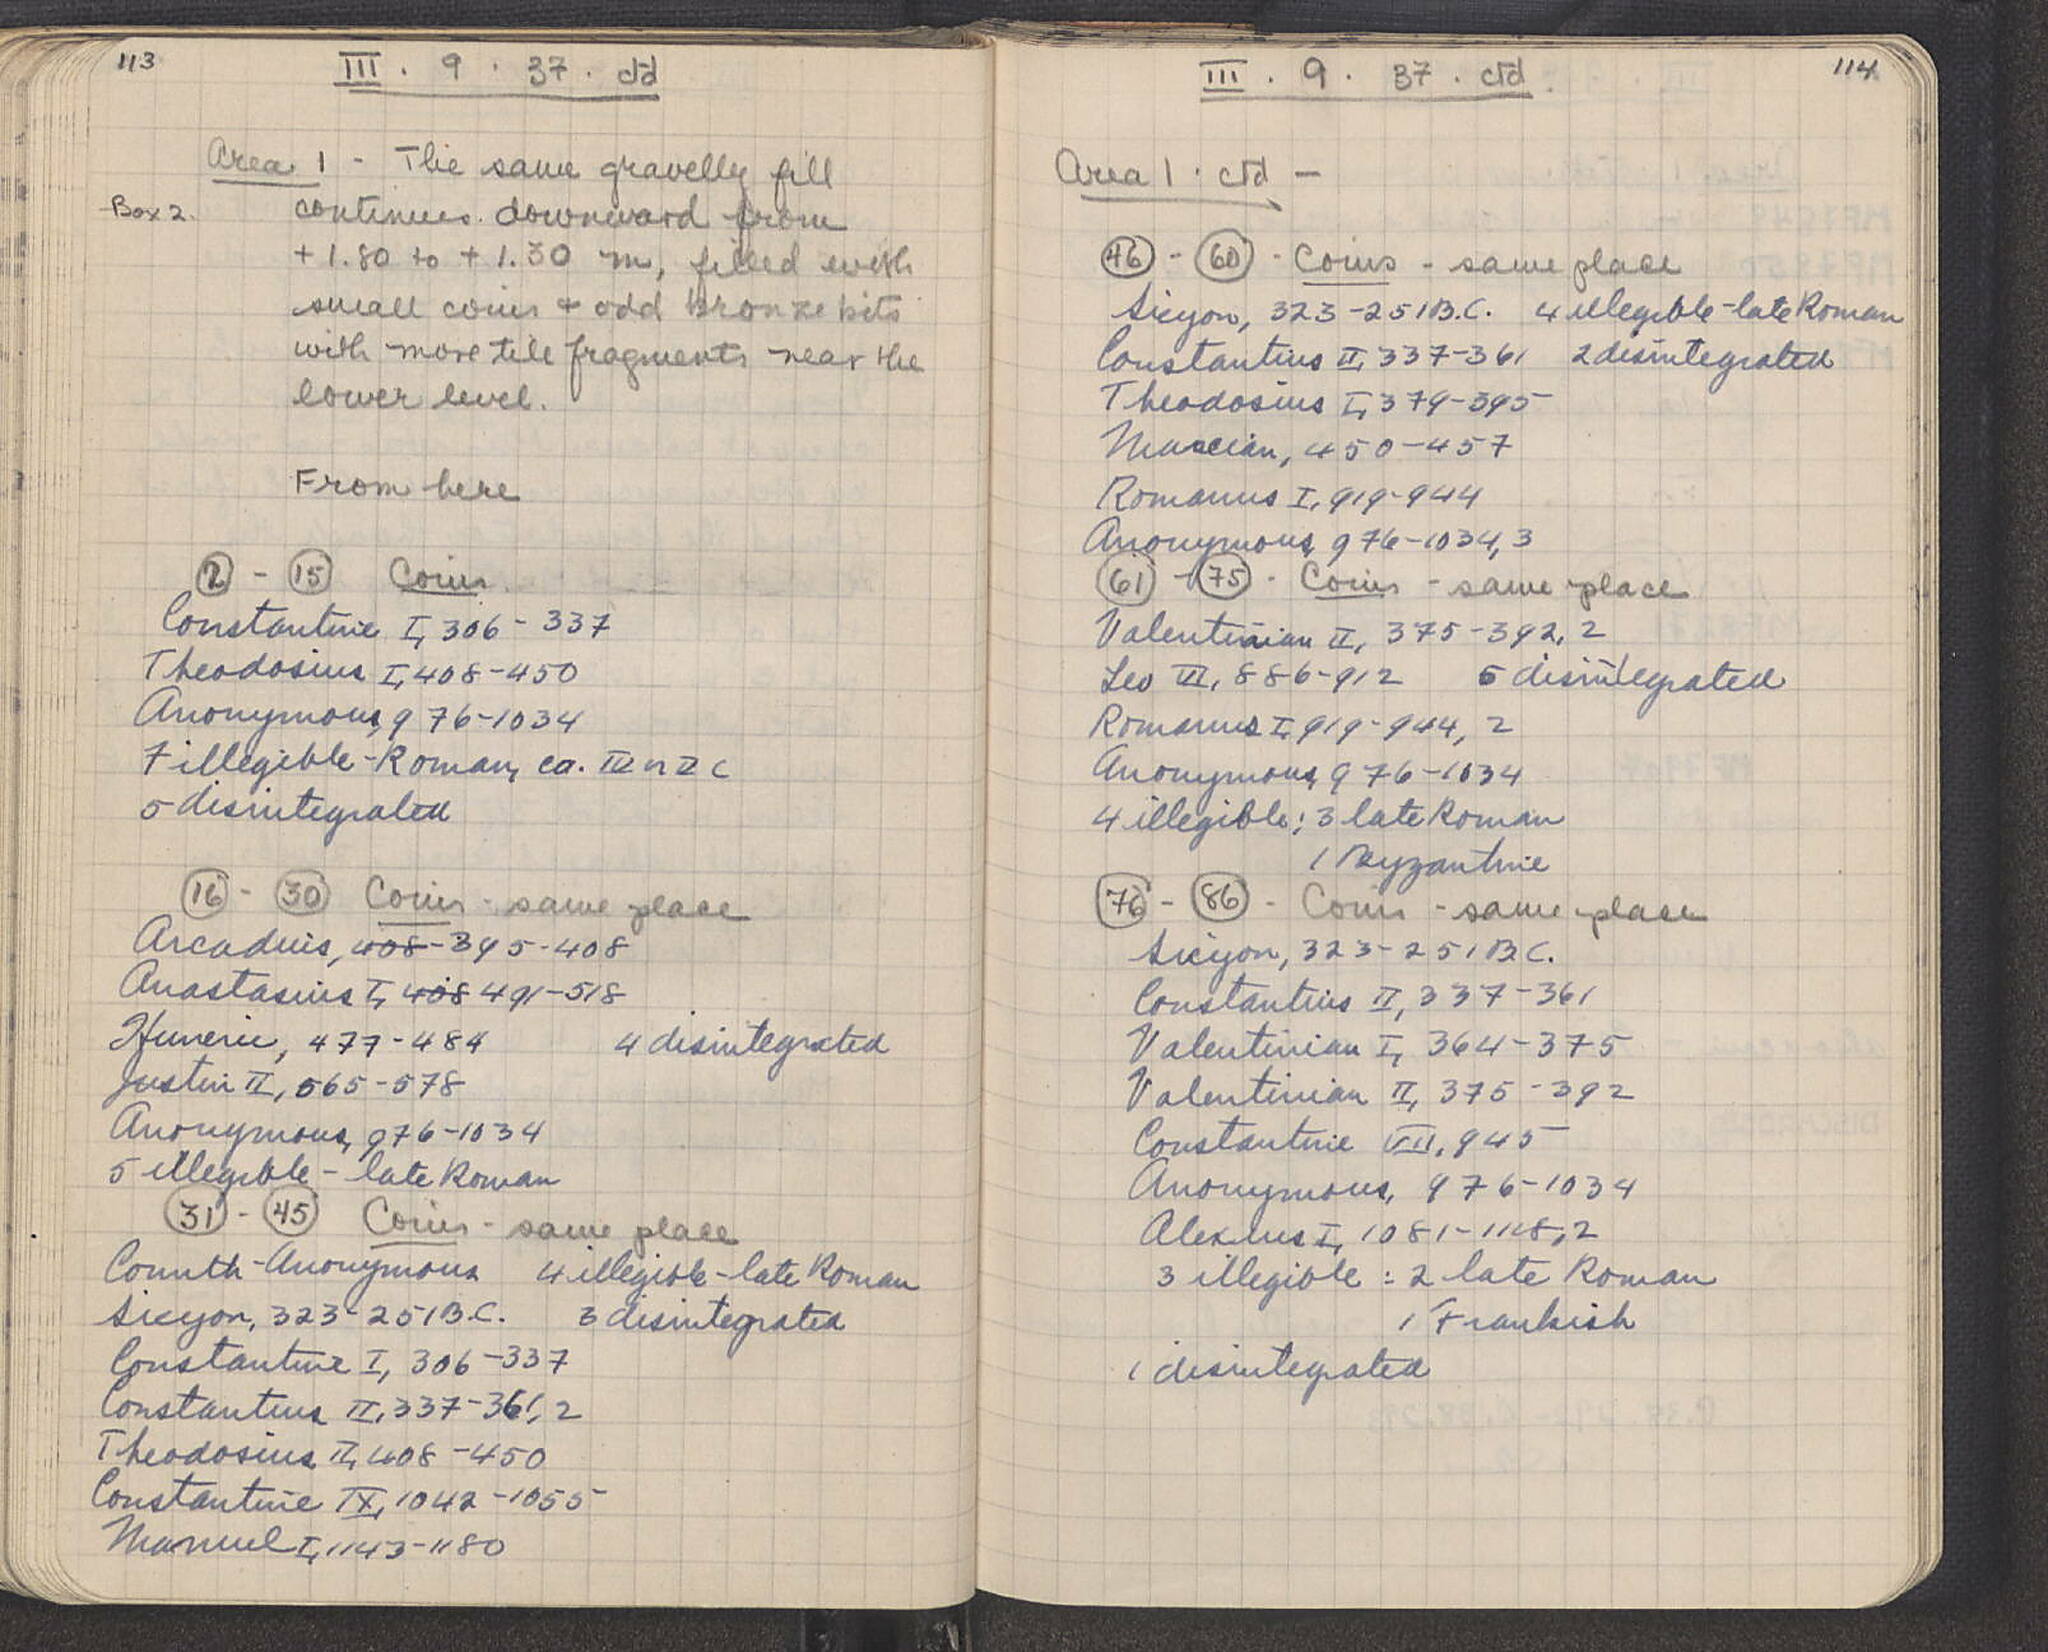 113
III . 9 . 37 . ctd
Area 1 - The same gravelly fill
Box 2.
continues downward from
+ 1.80 to + 1.30 m, filled with
small coins + odd bronze bits
with more tile fragments near the
lower level.
From here
2 - 15 Coins
Constantine I, 306 - 337
Theodosius I, 408-450
Anonymous, 976-1034
7 illegible - Roman, ca.
5 disintegrated
16 - 30 Coins - same place
Arcadius, 408 - 395-408
Anastasius I, 408 491-518
Huneric, 477-484 4 disintegrated
Justin II, 565-578
Anonymous, 976-1034
5 illegible - late Roman
31 - 45 Coins - same place
Corinth - Anonymous 4 illegible - late Roman
Sicyon, 323-251 B.C. 3 disintegrated
Constantine I, 306-337
Constantius II, 337-361, 2
Theodosius II, 408-450
Constantine IX, 1042-1055
Manuel I, 1143-1180
114
III . 9 . 37 . ctd
Area 1 . ctd -
46 - 60 - Coins - same place
Sicyon, 323-251 B.C. 4 illegible - late Roman
Constantius II, 337-361 2 disintegrated
Theodosius I, 379-395
Marcian, 450-457
Romanus I, 919-944
Anonymous, 976-1034, 3
61 - 75 - Coins - same place
Valentinian II, 375-392, 2
Leo VI, 886-912 5 disintegrated
Romanus I, 919-944, 2
Anonymous, 976-1034
4 illegible; 3 late Roman
1 Byzantine
76 - 86 - Coins - same place
Sicyon, 323-251 B.C.
Constantius II, 337-361
Valentinian I, 364-375
Valentinian II, 375-392
Constantine VII, 945
Anonymous, 976-1034
Alexius I, 1081-1118, 2
3 illegible : 2 late Roman
1 Frankish
1 disintegrated